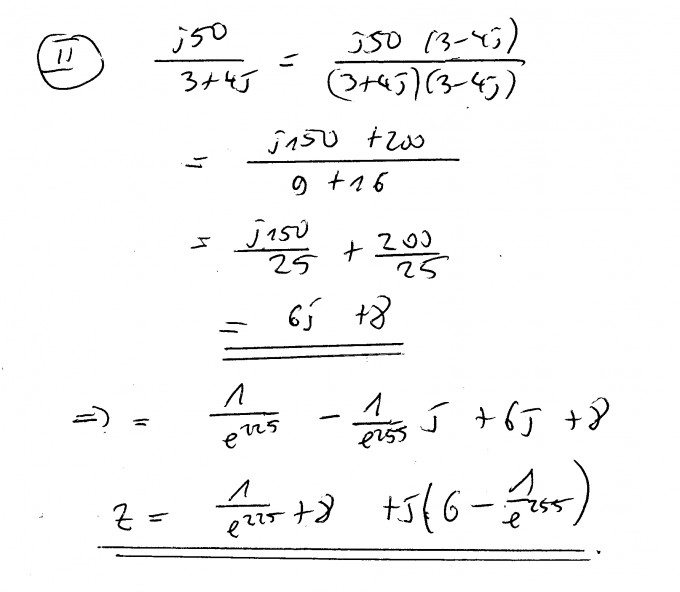 II) j50 / (3+4j) = j50 (3-4j) / (3+4j)(3-4j)
= (j150 +200) / (9 +16)
= j150/25 + 200/25
= 6j +8
=> = 1/e^225 - 1/e^255 j + 6j +8
z = 1/e^225 +8 +j(6 - 1/e^255).